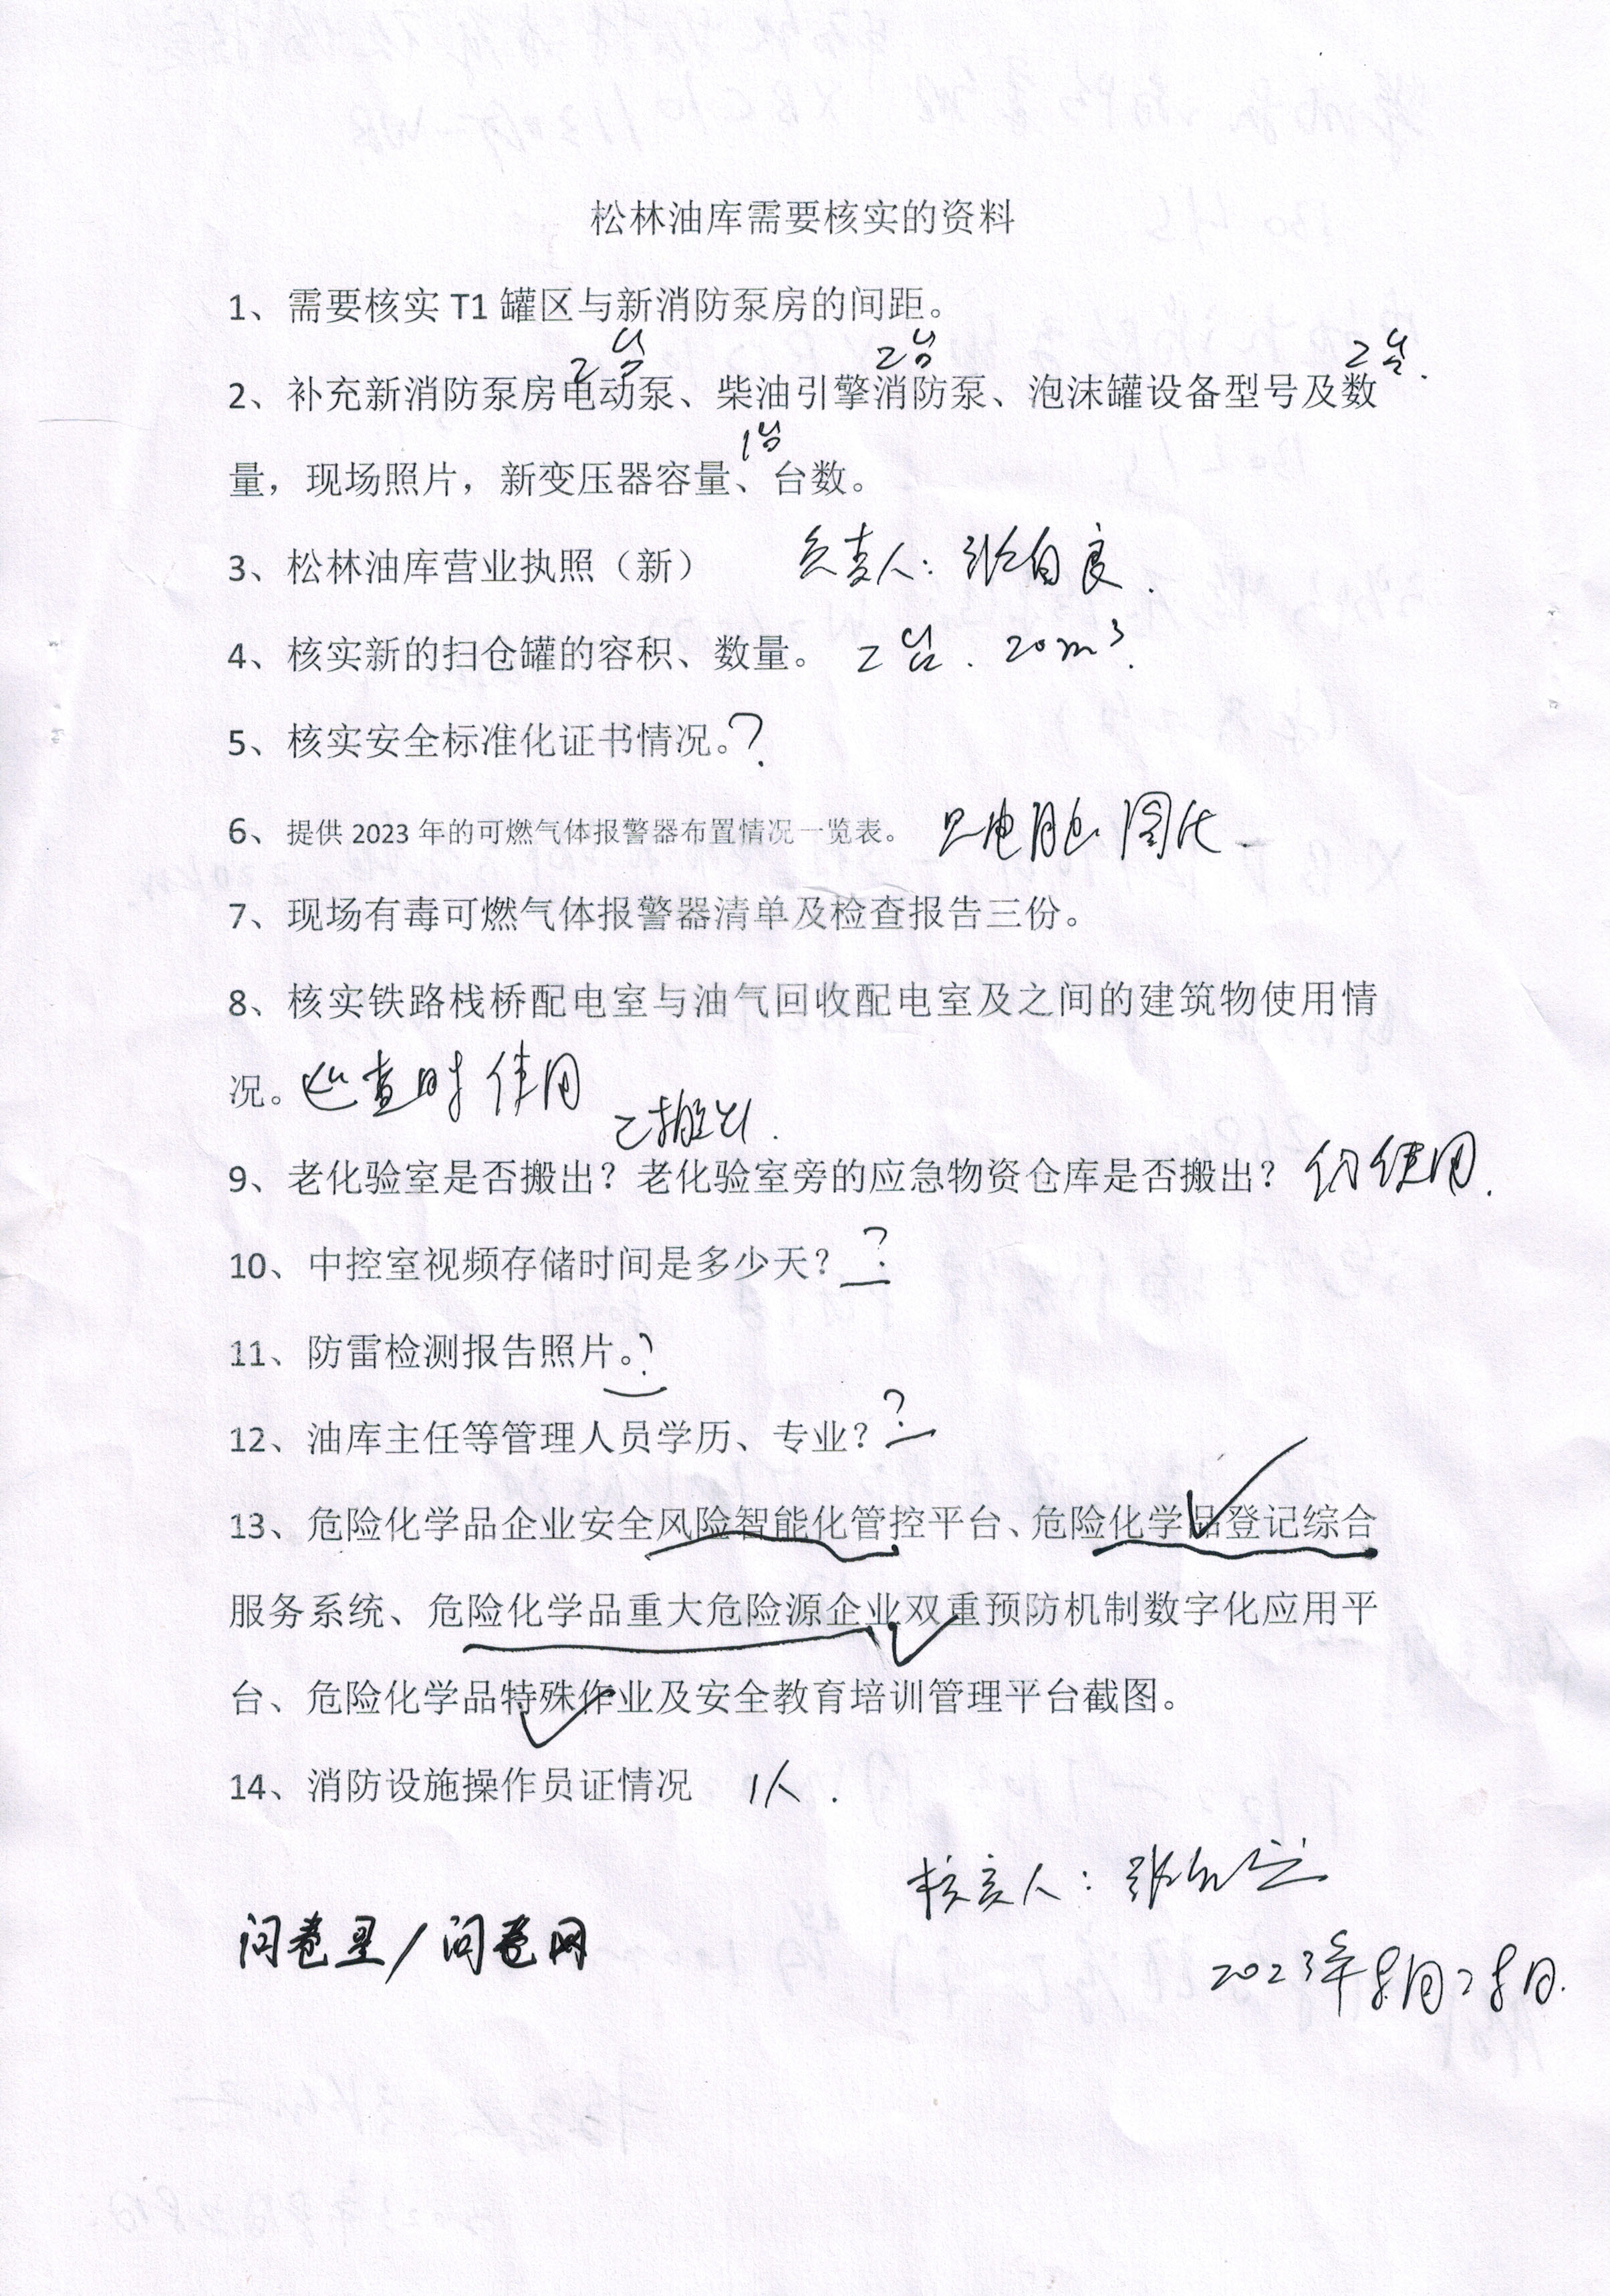 松林油库需要核实的资料
1、需要核实 T1 罐区与新消防泵房的间距。
2台 2台 2台.
2、补充新消防泵房电动泵、柴油引擎消防泵、泡沫罐设备型号及数
1台
量，现场照片，新变压器容量、台数。
3、松林油库营业执照（新） 负责人：张自良.
4、核实新的扫仓罐的容积、数量。 2台. 20m³.
5、核实安全标准化证书情况。?
6、提供 2023 年的可燃气体报警器布置情况一览表。 电脑图
7、现场有毒可燃气体报警器清单及检查报告三份。
8、核实铁路栈桥配电室与油气回收配电室及之间的建筑物使用情
况。巡查时使用
已搬出.
9、老化验室是否搬出？老化验室旁的应急物资仓库是否搬出？ 仍使用.
10、中控室视频存储时间是多少天？ ?
11、防雷检测报告照片。?
12、油库主任等管理人员学历、专业？ ?
13、危险化学品企业安全风险智能化管控平台、危险化学品登记综合
服务系统、危险化学品重大危险源企业双重预防机制数字化应用平
台、危险化学品特殊作业及安全教育培训管理平台截图。
14、消防设施操作员证情况 1人.
核实人：张
问卷星/问卷网
2023年8月28日.